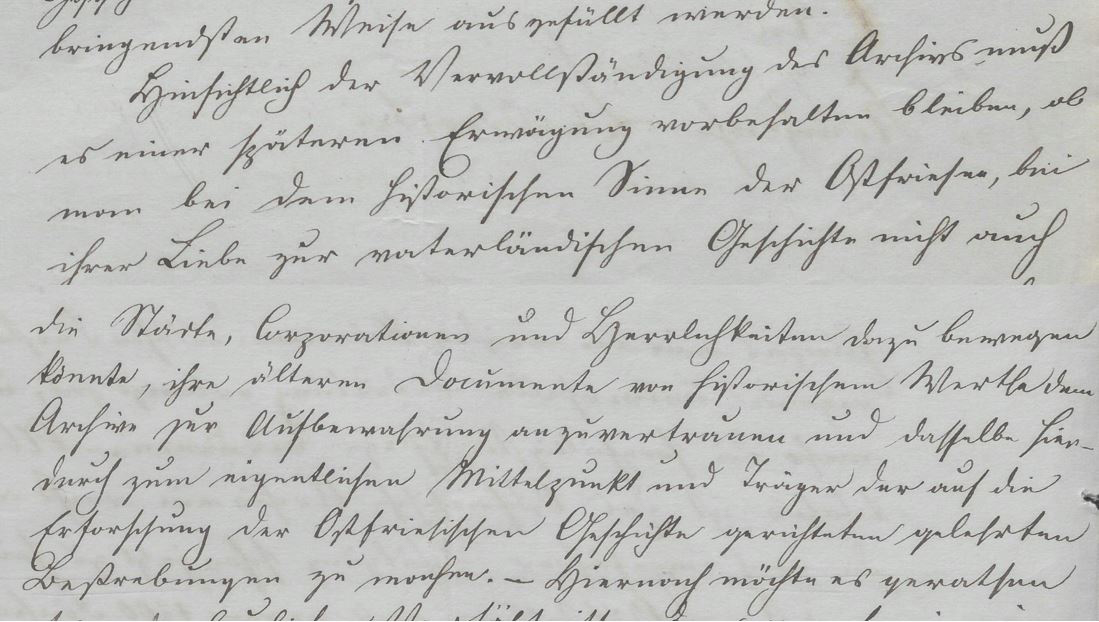 bringendsten Weise ausgefüllt werden.
Hinsichtlich der Vervollständigung des Archivs muß
es einer späteren Erwägung vorbehalten bleiben, ob
man bei dem historischen Sinne der Ostfriesen, bei
ihrer Liebe zur vaterländischen Geschichte nicht auch
die Städte, Corporationen und Herrlichkeiten dazu bewegen
könnte, ihre älteren Documente von historischem Werthe dem
Archive zur Aufbewahrung anzuvertrauen und dasselbe hier-
durch zum eigentlichen Mittelpunkt und Träger der auf die
Erforschung der Ostfriesischen Geschichte gerichteten gelehrten
Bestrebungen zu machen. – Hiernach möchte es gerathen